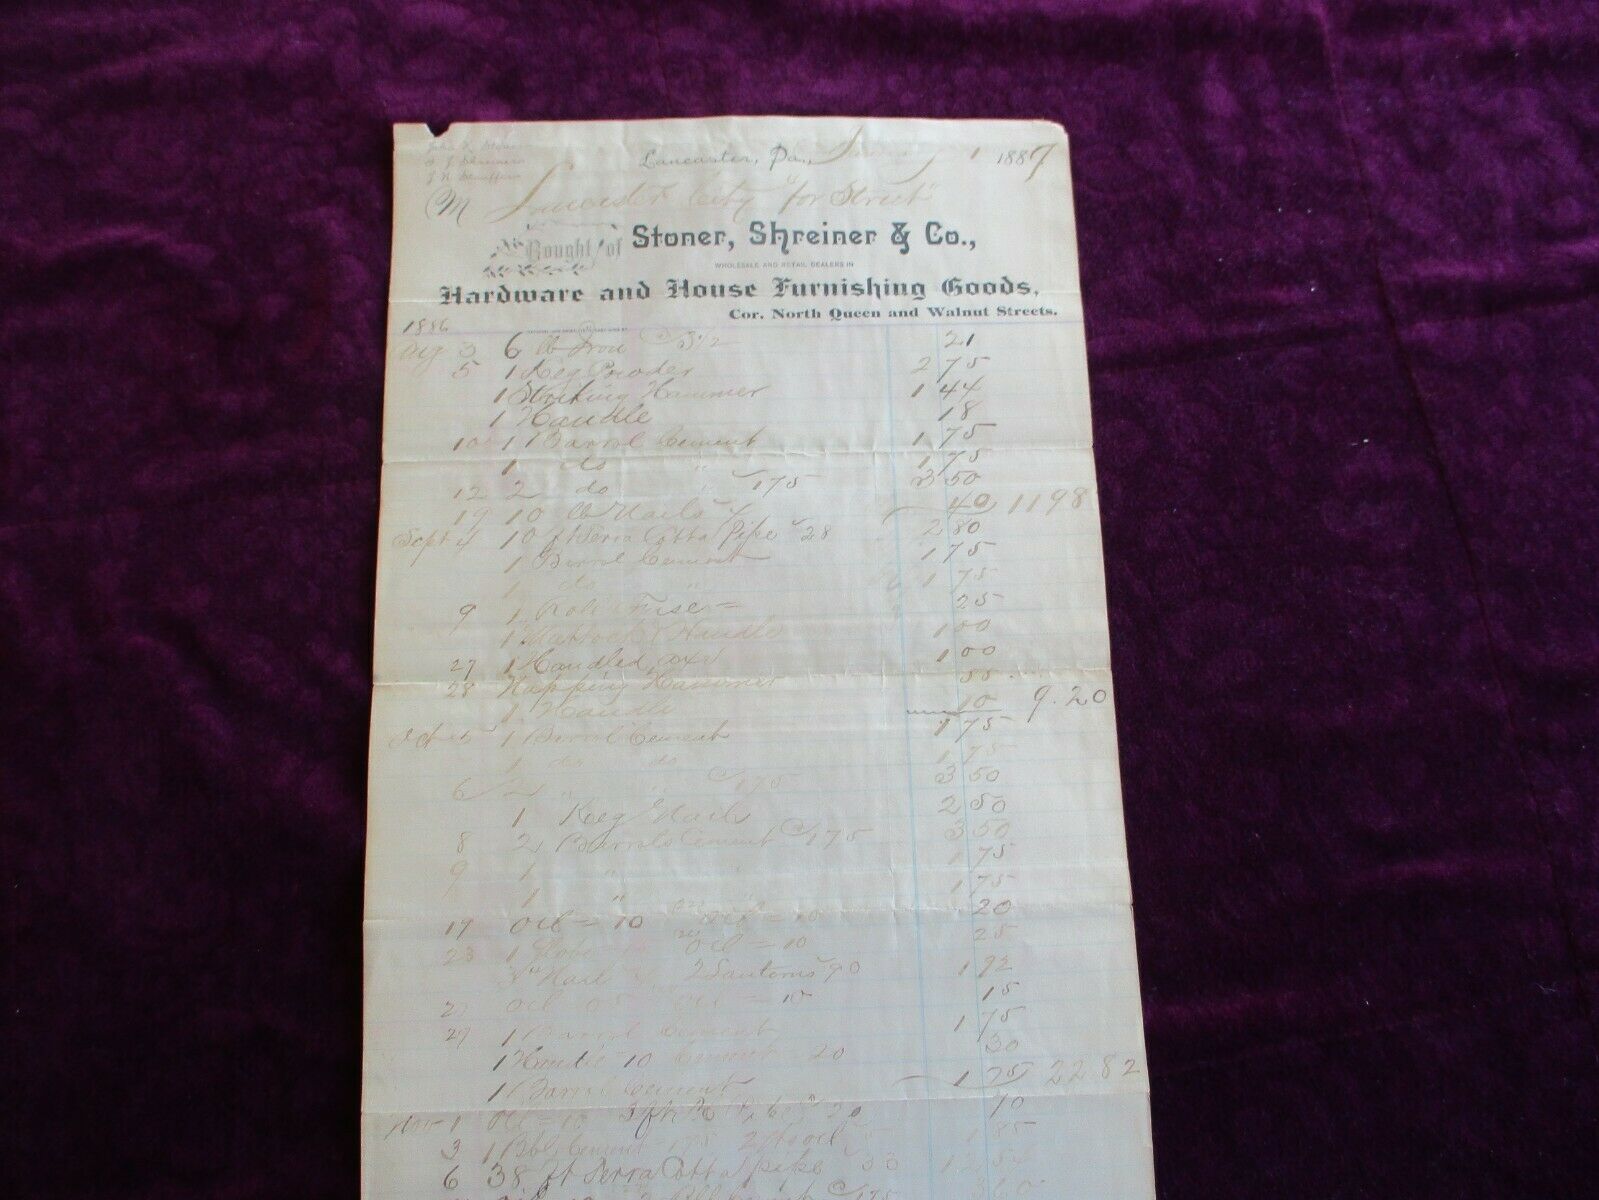 Lancaster, Pa., 1 1887
M Lancaster City "for Street"
Bought of Stoner, Shreiner & Co.,
WHOLESALE AND RETAIL DEALERS IN
Hardware and House Furnishing Goods,
Cor. North Queen and Walnut Streets.
1886
Aug 3 6 lb Iron @ 3½ 21
5 1 Keg Powder 2 75
1 Striking Hammer 1 44
1 Handle 18
10 1 Barrel Cement 1 75
1 do " 1 75
12 2 do " 175 3 50
19 10 lb Nails 4 40 11 98
Sept 4 10 ft Terra Cotta Pipe 28 2 80
1 Barrel Cement 1 75
1 do " 1 75
9 1 25
1 Mattock & Handle 1 00
27 1 Handled axe 1 00
28 Napping Hammer 55
1 Handle 10 9.20
Oct 5 1 Barrel Cement 1 75
1 do do 1 75
6 2 " " @ 175 3 50
1 Keg Nails 2 50
8 2 Barrels Cement @ 175 3 50
9 1 " " 1 75
1 " " 1 75
17 Oil = 10 Oil = 10 20
23 1 Globe Oil = 10 25
3 " Nails 4 2 Lanterns 90 1 92
27 Oil 05 Oil = 10 15
29 1 Barrel Cement 1 75
1 Handle 10 Cement 20 30
1 Barrel Cement 1 75 22 82
Nov 1 Oil = 10 3 ft 20 70
3 1 Bbl Cement 175 oil 1 85
6 38 ft Terra Cotta pipe 33 12 54
2 Bbl @ 175 3 60